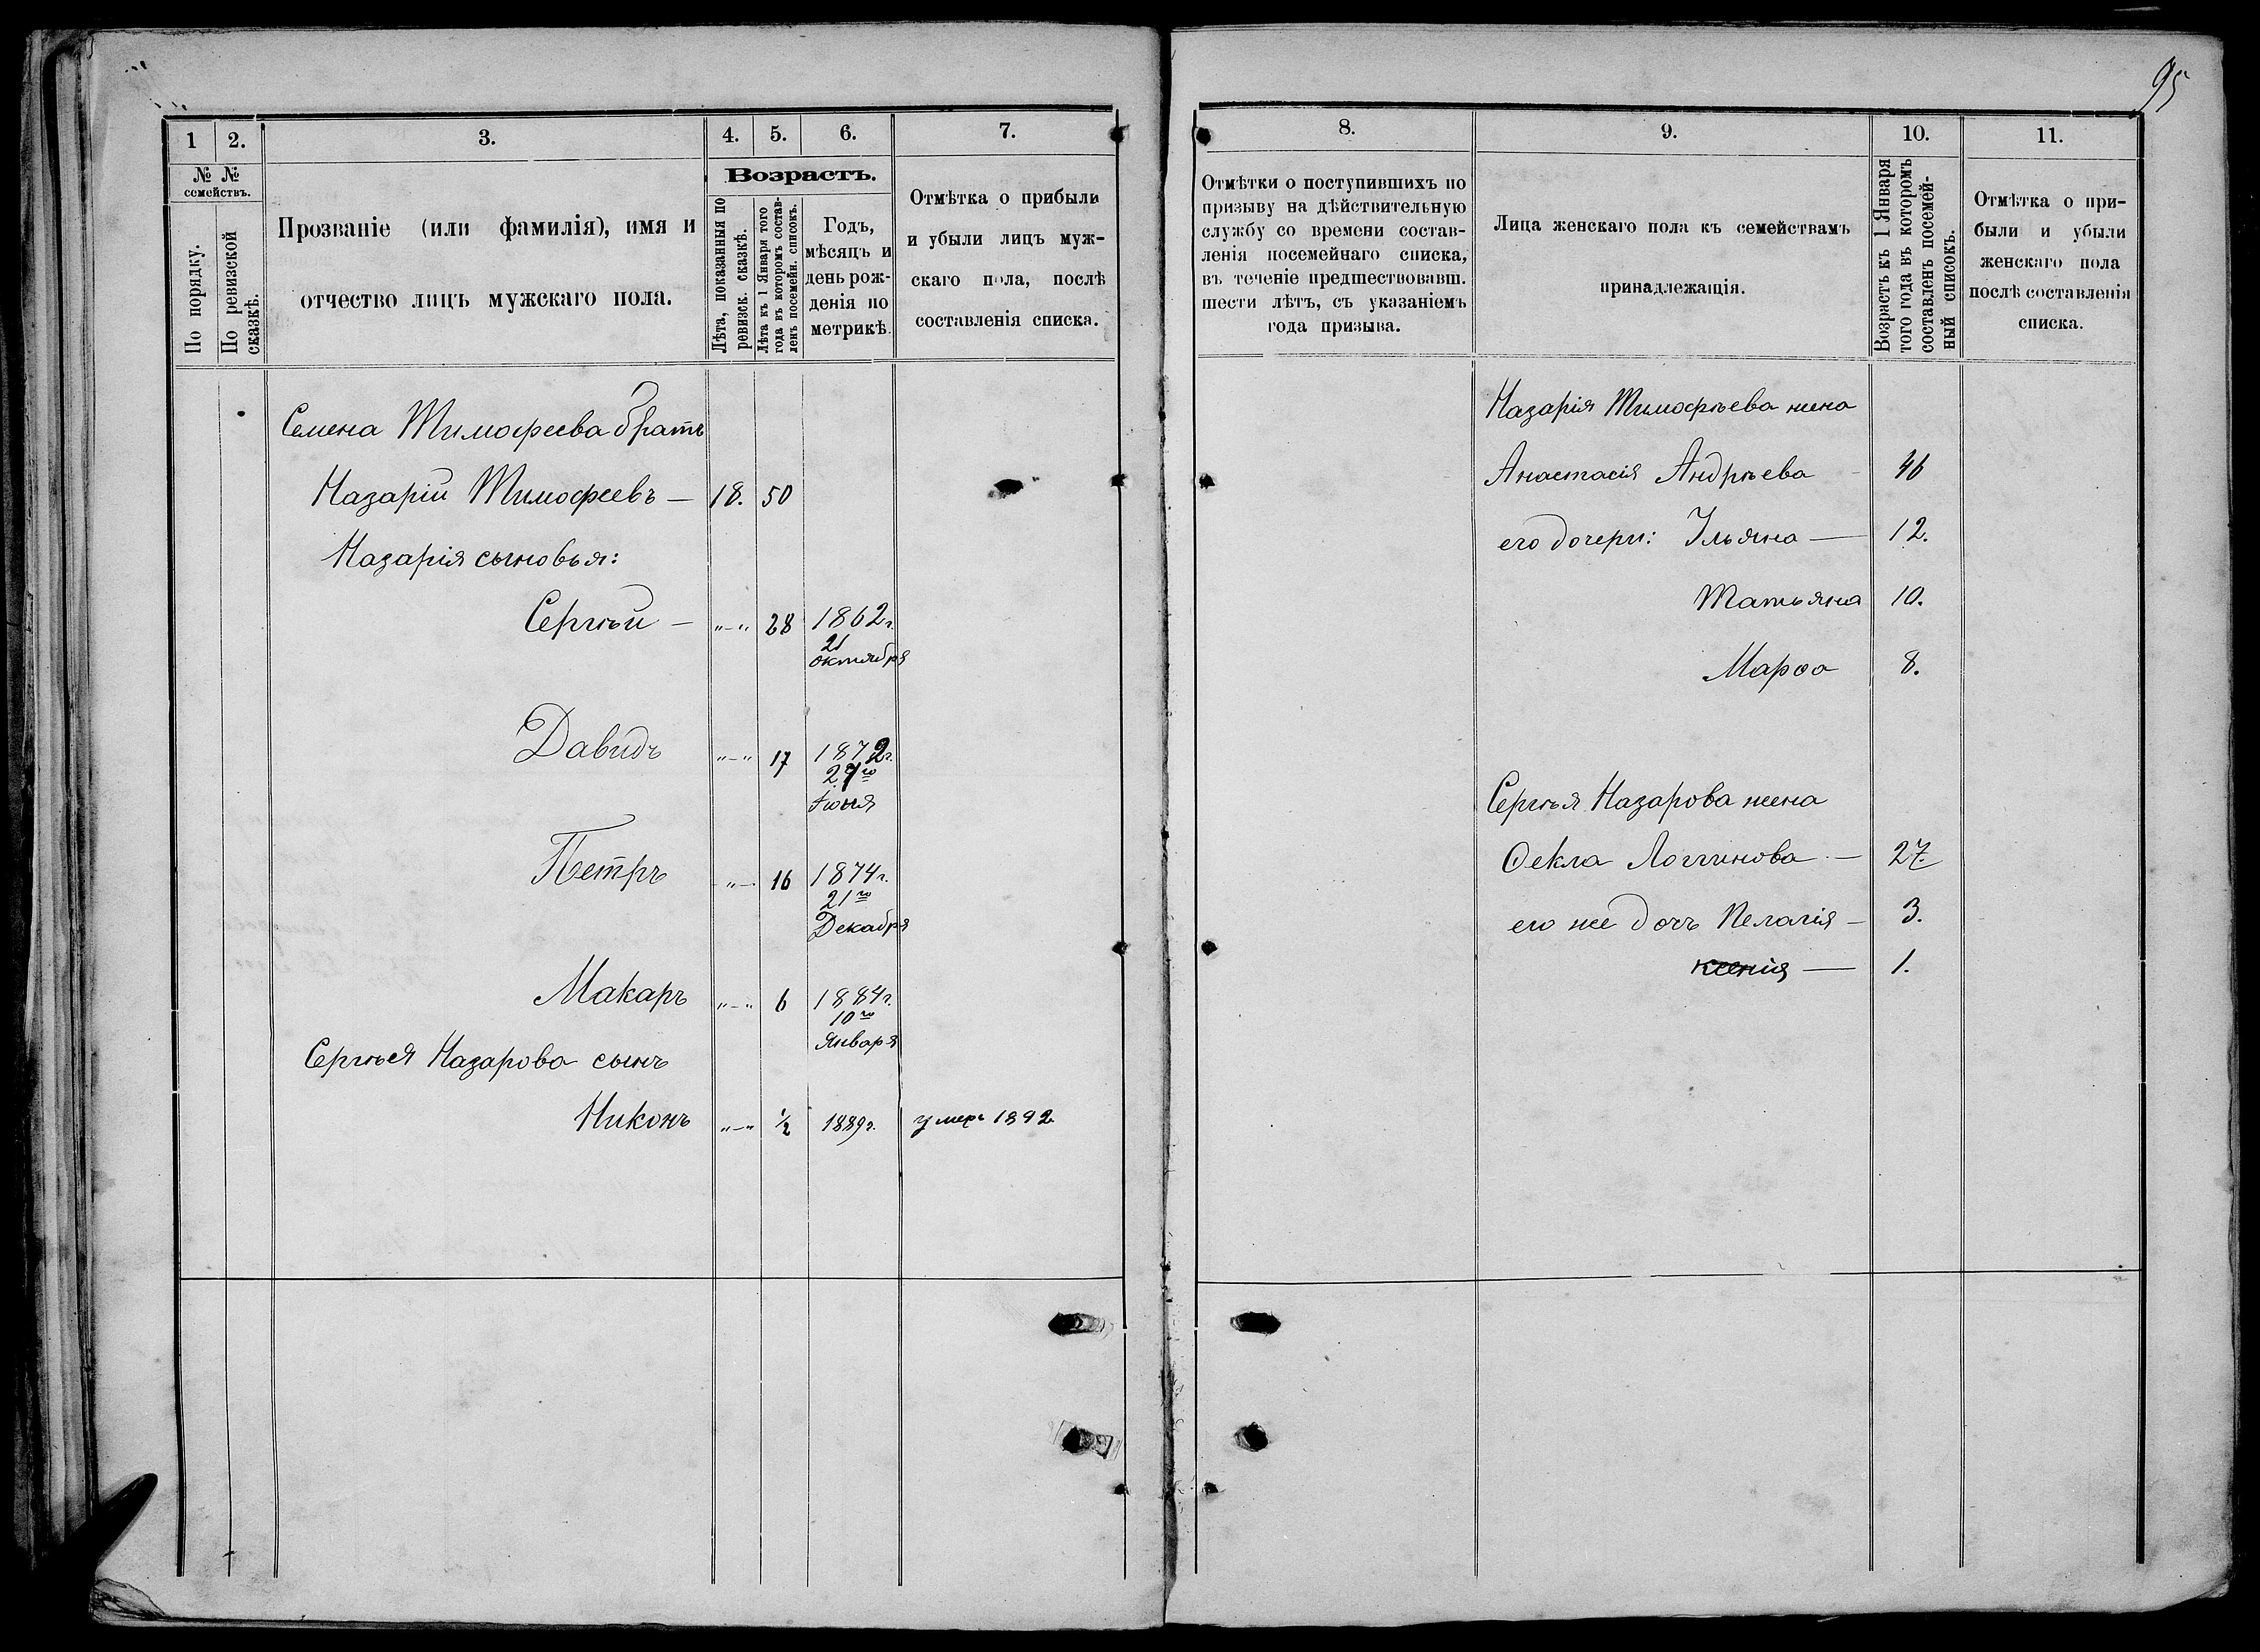 95
1 2. 3. 4. 5. 6. 7.
№ № семействъ.
По порядку.
По ревизской сказкѣ.
Прозваніе (или фамилія), имя и
отчество лицъ мужскаго пола.
Возрастъ.
Лѣта, показанныя по
ревизск. сказкѣ.
Лѣта къ 1 Января того
года въ которомъ состав-
ленъ посемейн. списокъ.
Годъ,
мѣсяцъ и
день рож-
денія по
метрикѣ.
Отмѣтка о прибыли
и убыли лицъ муж-
скаго пола, послѣ
составленія списка.
Семена Тимофеева братъ
Назарій Тимофеевъ — 18. 50
Назарія сыновья:
Сергѣй — „—„ 28 1862г.
21
октября
Давидъ „—„ 17 1872г.
го
Іюня
Петръ „— 16 1874г.
21го
Декабря
Макаръ „—„ 6 1884г.
10го
Января
Сергѣя Назарова сынъ
Никонъ „—„ ½ 1889г. умеръ 1892
8. 9. 10. 11.
Отмѣтки о поступившихъ по
призыву на дѣйствительную
службу со времени состав-
ленія посемейнаго списка,
въ теченіе предшествовавш.
шести лѣтъ, съ указаніемъ
года призыва.
Лица женскаго пола къ семействамъ
принадлежащія.
Возрастъ къ 1 Января
того года въ которомъ
составленъ посемей-
ный списокъ.
Отмѣтка о при-
были и убыли
женскаго пола
послѣ составленія
списка.
Назарія Тимофѣева жена
Анастасія Андрѣева - 46
его дочери: Ульяна — 12.
Татьяна 10.
Марѳа 8.
Сергѣя Назарова жена
Ѳекла Логгинова — 27.
его же дочь Пелагія — 3.
ксенія — 1.